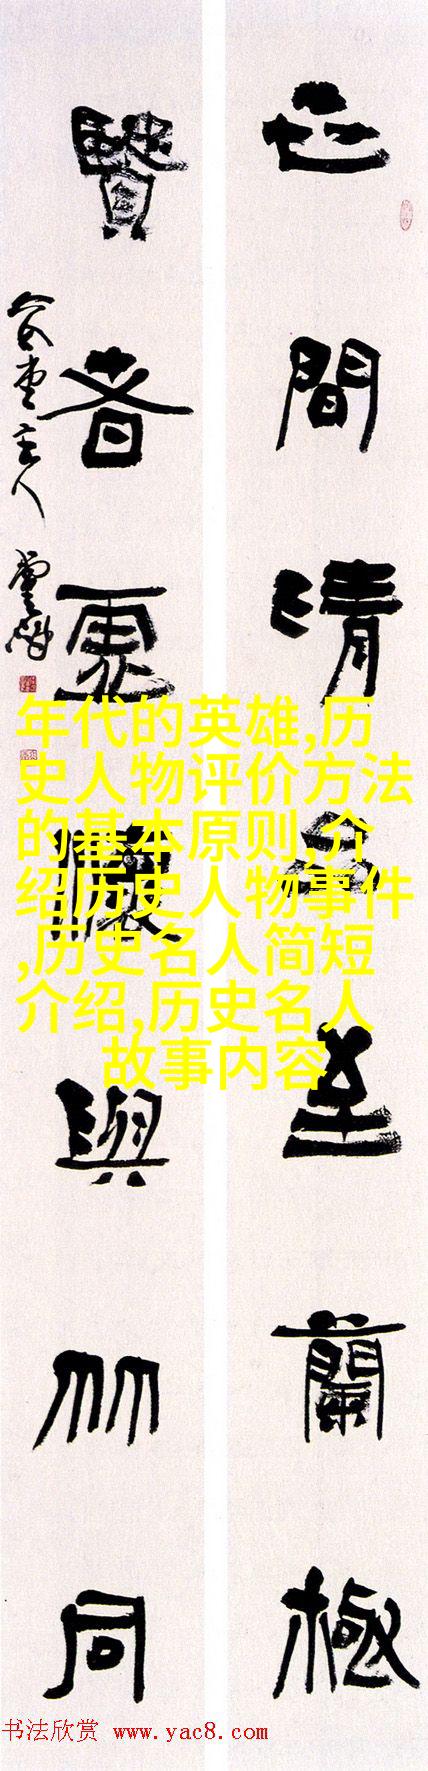 世間清品至蘭極
賢者虛懷與竹同
主人
年代的英雄,历
史人物评价方法
的基本原则,介
绍历史人物事件
,历史名人简短
介绍,历史名人
故事内容
书法欣赏 www.yac8.com